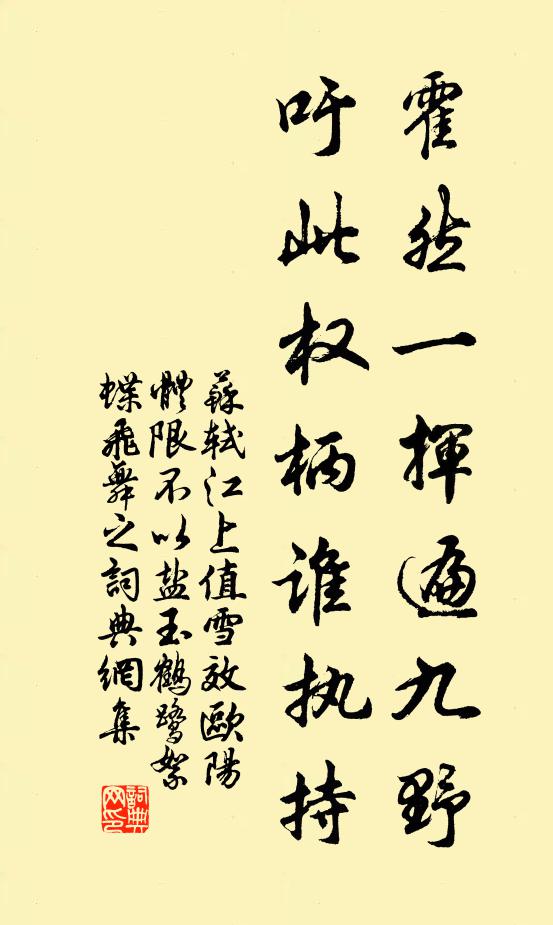 霍然一揮遍九野
吁此权柄谁执持
蘇軾江上值雪效歐陽
體限不以盐玉鶴鹭絮
蝶飛舞之詞典網集
詞典
网印